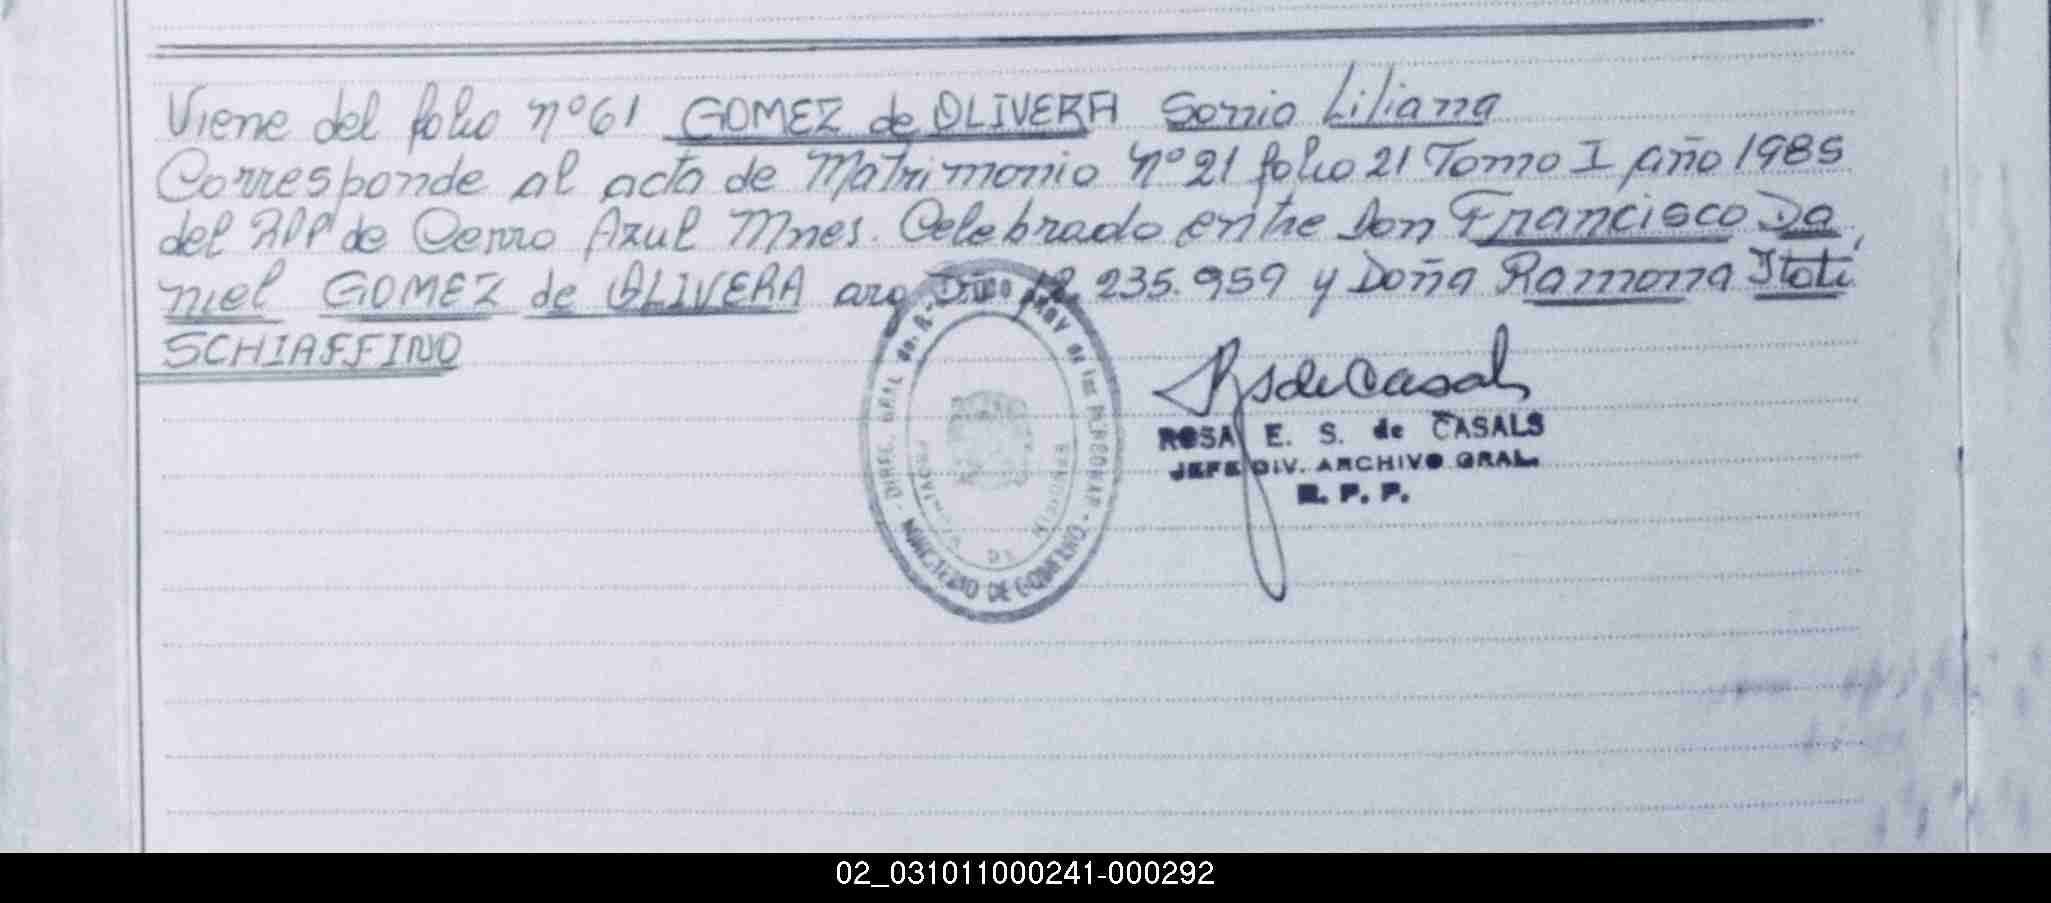 Viene del folio nº61 GOMEZ de OLIVERA Sonia Liliana
Corresponde al acta de Matrimonio nº21 folio 21 Tomo I año 1985
del RPP de Cerro Azul Mnes. Celebrado entre Don Francisco Da
niel GOMEZ de OLIVERA arg 235.959 y Doña Ramona Itatí
SCHIAFFINO
RSdeCasals
ROSA E. S. de CASALS
JEFE DIV. ARCHIVO GRAL.
R. P. P.
DIREC. GRAL de las PERSONAS - MINISTERIO DE GOBIERNO
PROVINCIA DE MISIONES
02_031011000241-000292